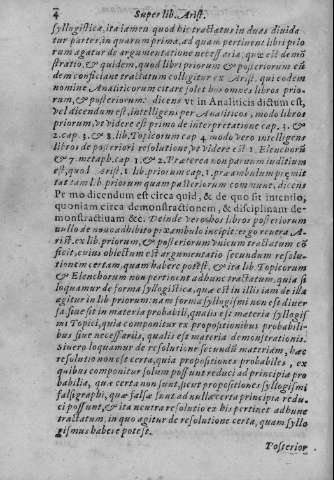 4 Super lib. Arist.
syllogistica, ita tamen quod hic tractatus in duas diuida
tur partes, in quarum prima, ad quam pertinent libri prio
rum agatur de argumentatione necessaria, quæ est demõ
stratio, & quidem, quod libri priorum & posteriorum eũ
dem conficiant tractatum colligitur ex Arist. qui eodem
nomine Analiticorum citare solet hos omnes libros prio
rum, & posteriorum: dicens vt in Analiticis dictum est,
vel dicendum est, intelligens per Analiticos, modo libros
priorum, vt videre est primo de interpretatione cap. 3. &
2. cap. 3. & 8. lib. Topicorum cap 4 modo vero intelligens
libros de posteriori resolutione, vt videre est 1 Elenchorũ
& 7 metaph. cap 1. & 2. Præterea non paruum inditium
est, quod Arist. 1. lib. priorum cap. 1. præambulum præmit
tat tam lib priorum quam posteriorum commune, dicens
Primo dicendum est circa quid, & de quo sit intentio,
quoniam circa demonstrationem, & disciplinam de-
monstratiuam &c. Deinde vero hos libros posteriorum
nullo de nouo adhibito præambulo incipit: ergo reuera A-
rist. ex lib. priorum, & posteriorum vnicum tractatum cõ
ficit, cuius obiectum est argumentatio secundum resolu-
tionem certam, quam habere potest, & ita lib Topicorum
& Elenchorum non pertinent ad hunc tractatum, quia si
loquamur de forma syllogistica, quæ est in illis iam de illa
agitur in lib priorum: nam forma syllogismi non est diuer
sa, siue sit in materia probabili, qualis est materia syllogis
mi Topici, quia componitur ex propositionibus probabili-
bus siue necessarijs, qualis est materia demonstrationis.
Si vero loquamur de resolutione secundũ materiam, hæc
resolutio non est certa, quia propositiones probabiles, ex
quibus componitur solum possunt reduci ad principia pro
babilia, quæ certa non sunt, sicut propositiones syllogismi
falsigraphi, quæ falsæ sunt ad nulla certa principia redu-
ci possunt, & ita neutra resolutio ex his pertinet ad hunc
tractatum, in quo agitur de resolutione certa, quam syllo
gismus habere potest.
Posterior